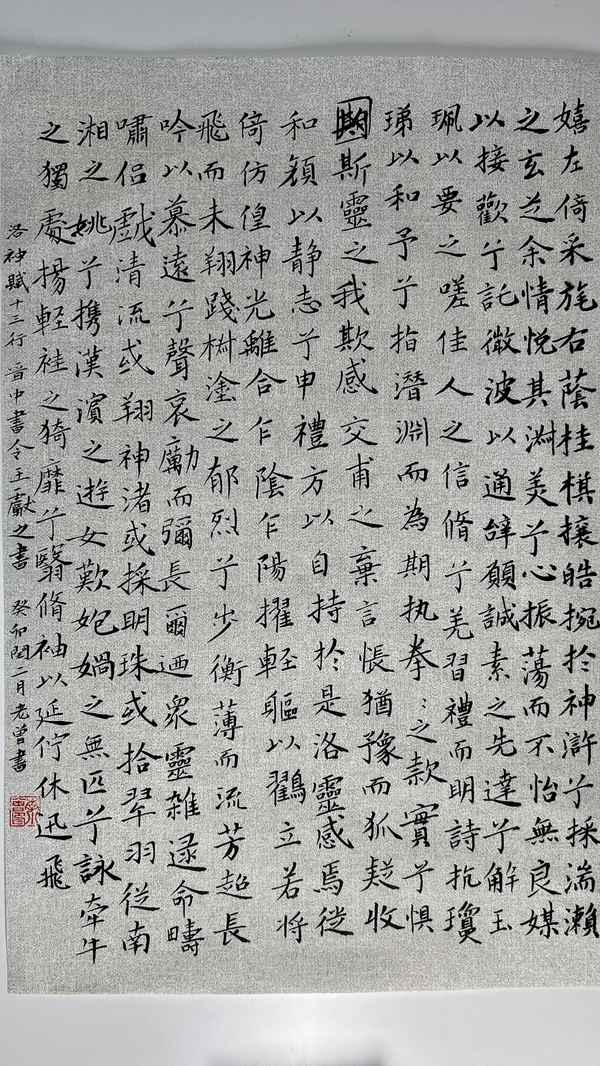 嬉左倚采旄右蔭桂棋攘皓捥於神滸兮採湍瀨
之玄芝余情悅其淑美兮心振蕩而不怡無良媒
以接歡兮託微波以通辭願誠素之先達兮解玉
珮以要之嗟佳人之信脩兮羌習禮而明詩抗瓊
珶以和予兮指潛淵而為期执拳〻之款實兮惧
斯靈之我欺感交甫之棄言悵猶豫而狐疑收
和顏以静志兮申禮方以自持於是洛靈感焉徙
倚仿偟神光離合乍陰乍陽擢輕軀以鶴立若將
飛而未翔踐椒塗之郁烈兮步衡薄而流芳超長
吟以慕遠兮聲哀勵而彌長爾迺衆靈雜遝命疇
嘯侣戲清流或翔神渚或採明珠或拾翠羽從南
湘之姚兮攜漢濱之遊女歎妑媧之無匹兮詠牽牛
之獨處揚輕袿之猗靡兮翳脩袖以延佇休迅飛
洛神賦十三行 晋中書令王獻之書 癸卯閏二月老曾書